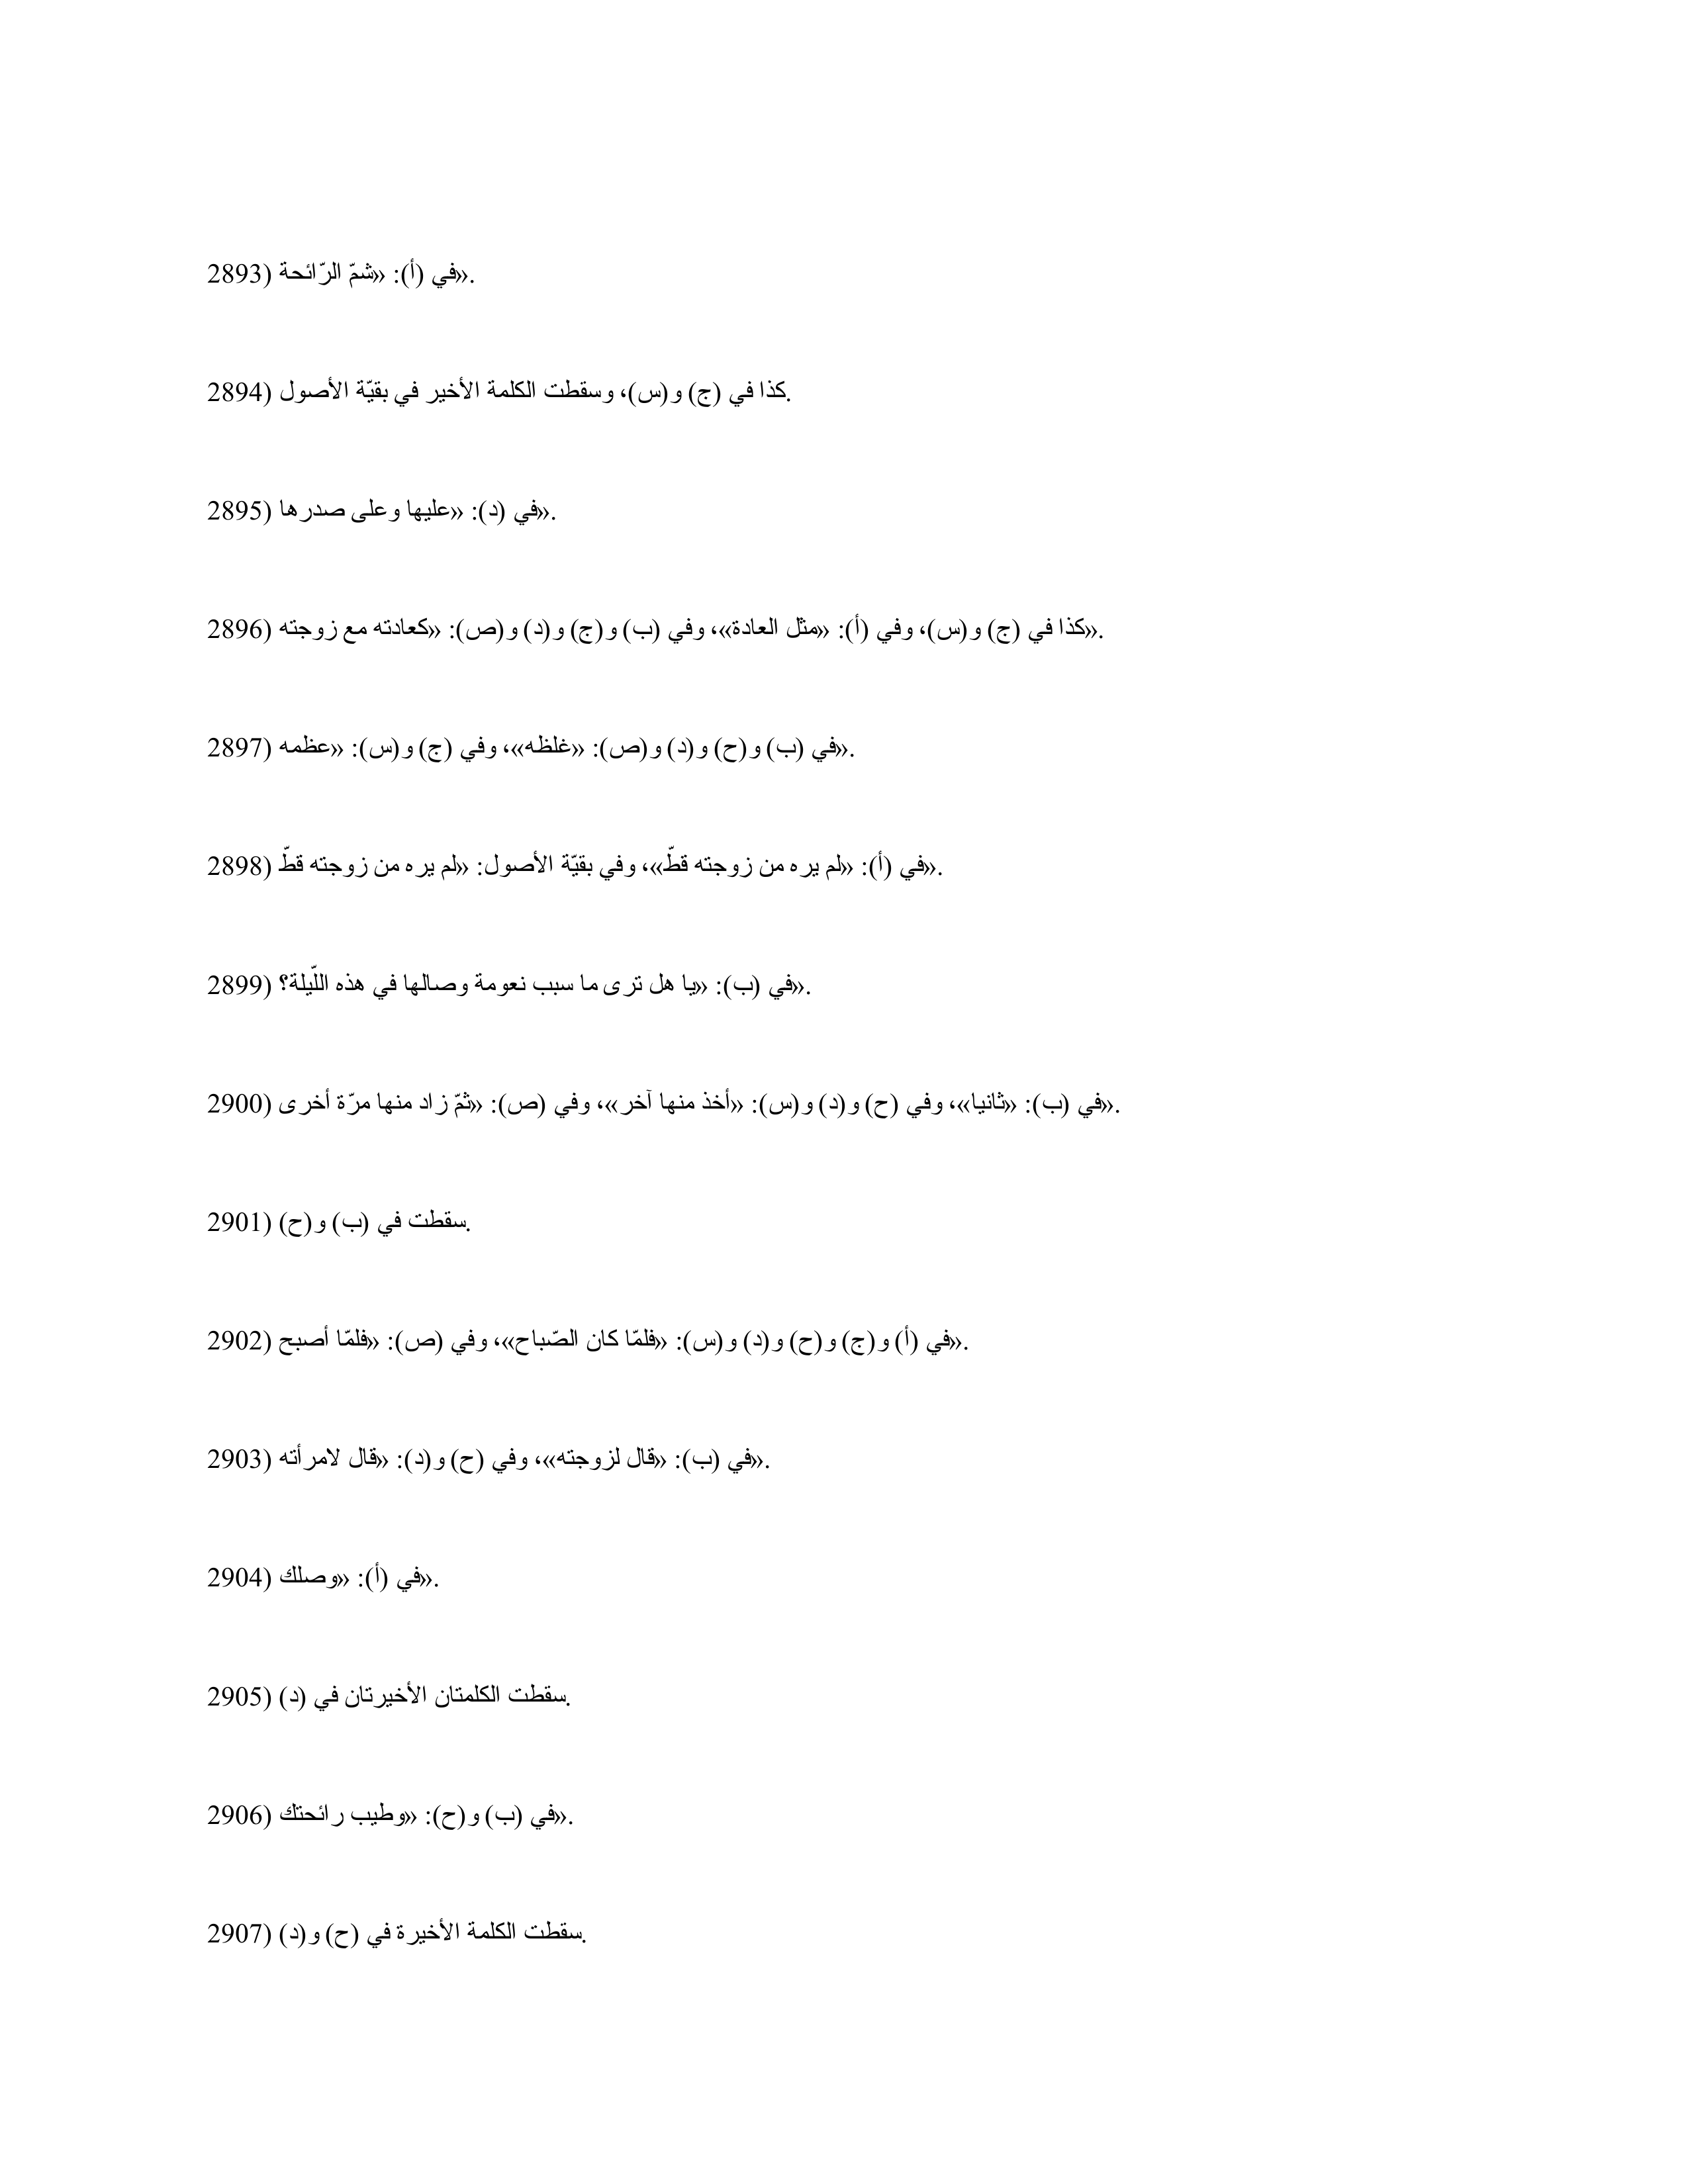 2893) في (أ): «شمّ الرّائحة».
2894) كذا في (ج) و(س)، وسقطت الكلمة الأخير في بقيّة الأصول.
2895) في (د): «عليها وعلى صدرها».
2896) كذا في (ج) و(س)، وفي (أ): «مثل العادة»، وفي (ب) و(ج) و(د) و(ص): «كعادته مع زوجته».
2897) في (ب) و(ح) و(د) و(ص): «غلظه»، وفي (ج) و(س): «عظمه».
2898) في (أ): «لم يره من زوجته قطّ»، وفي بقيّة الأصول: «لم يره من زوجته قطّ».
2899) في (ب): «يا هل ترى ما سبب نعومة وصالها في هذه اللّيلة؟».
2900) في (ب): «ثانيا»، وفي (ح) و(د) و(س): «أخذ منها آخر»، وفي (ص): «ثمّ زاد منها مرّة أخرى».
2901) سقطت في (ب) و(ح).
2902) في (أ) و(ج) و(ح) و(د) و(س): «فلمّا كان الصّباح»، وفي (ص): «فلمّا أصبح».
2903) في (ب): «قال لزوجته»، وفي (ح) و(د): «قال لامرأته».
2904) في (أ): «وصلك».
2905) سقطت الكلمتان الأخيرتان في (د).
2906) في (ب) و(ح): «وطيب رائحتك».
2907) سقطت الكلمة الأخيرة في (ح) و(د).